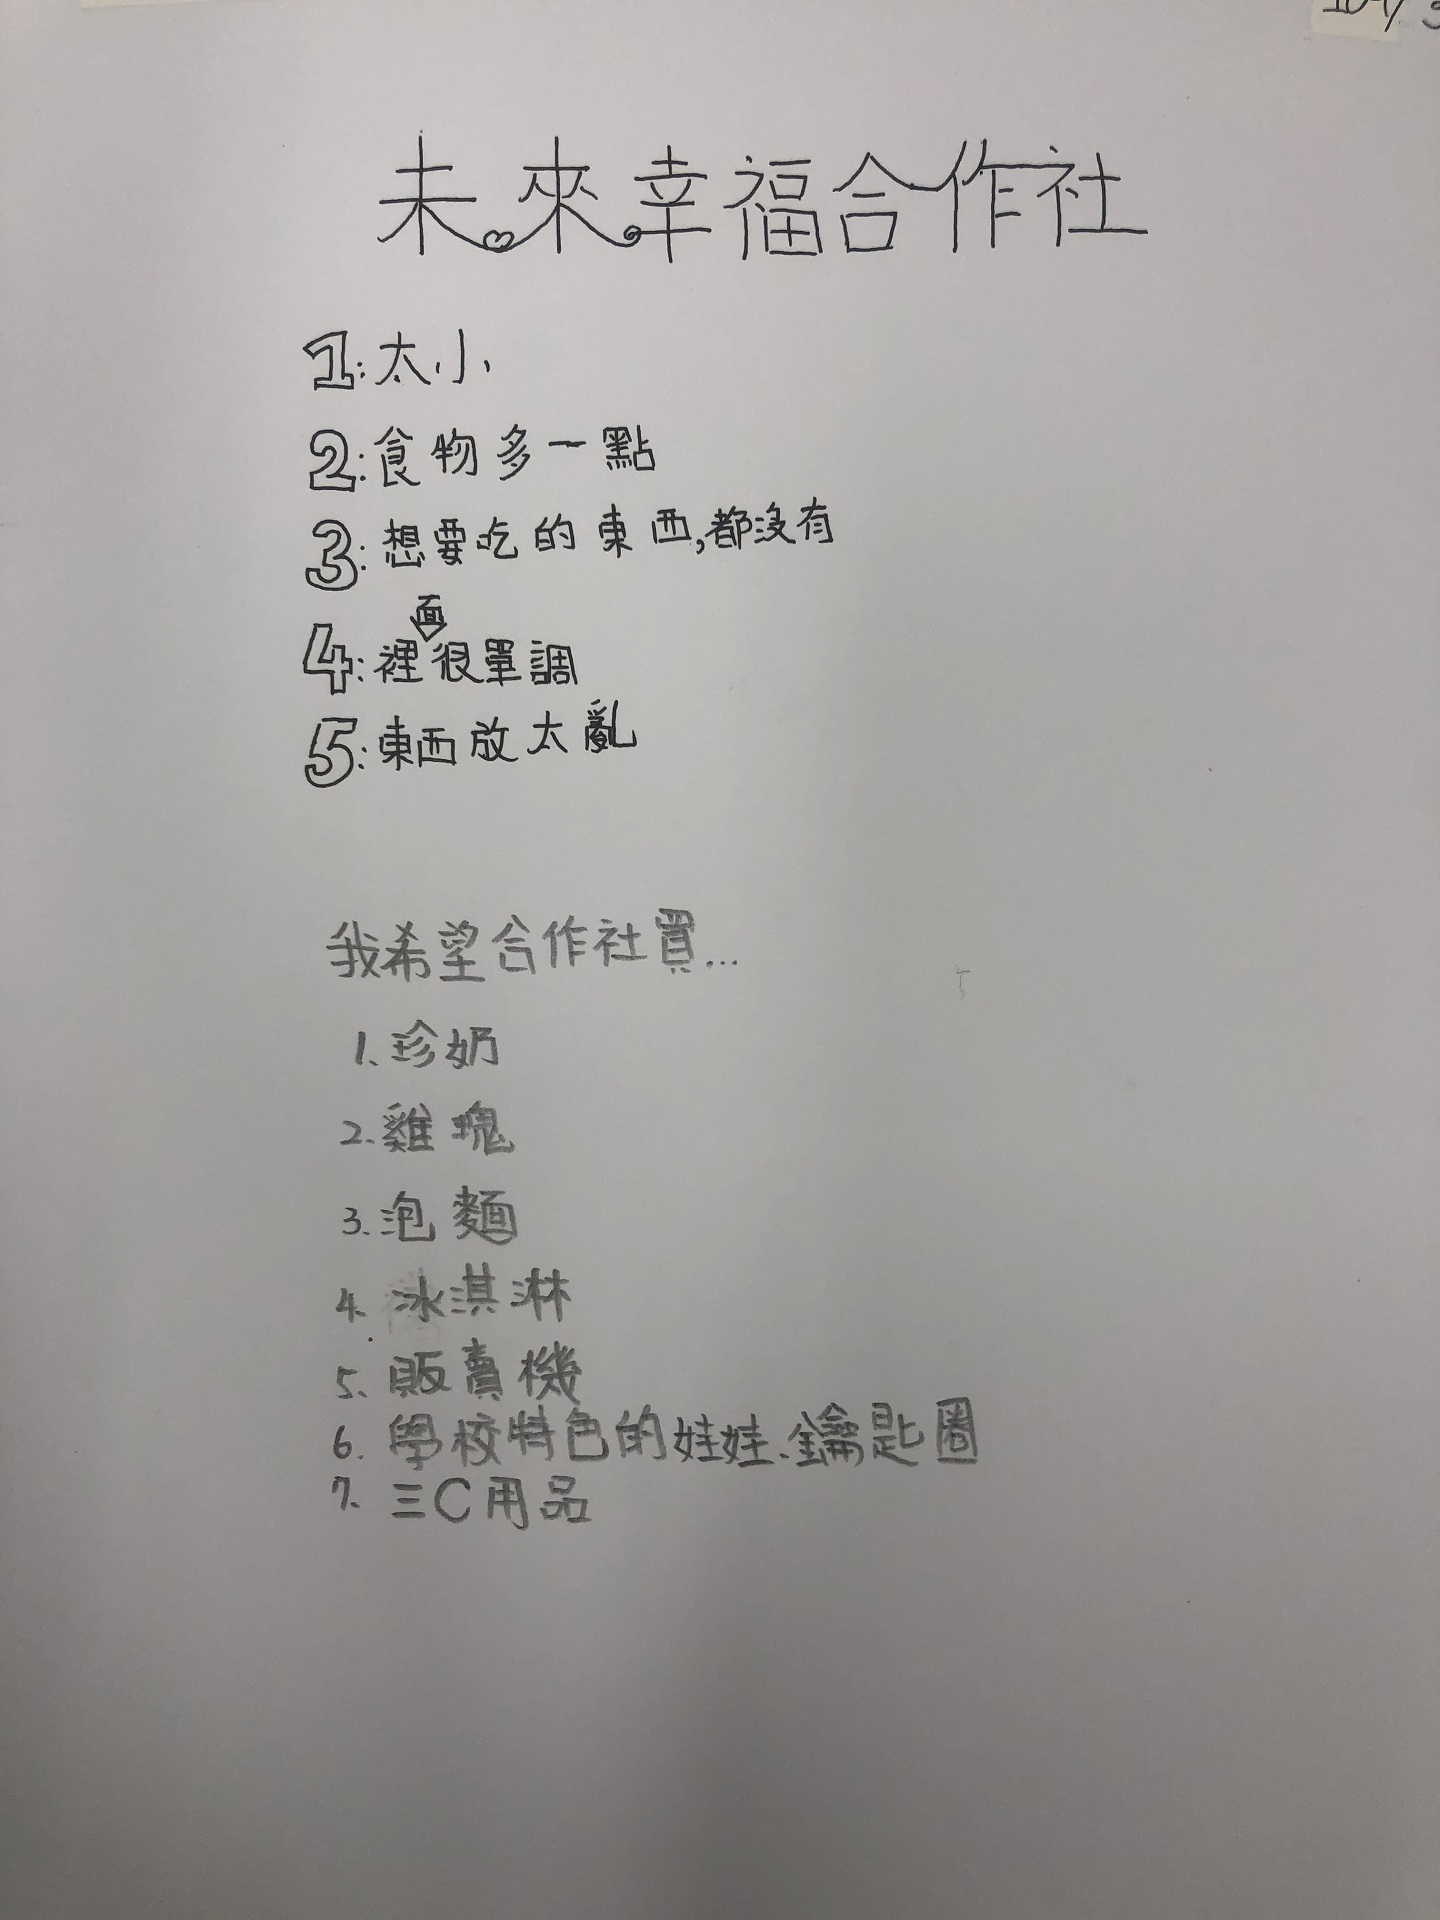 未來幸福合作社
1:太小
2:食物多一點
3:想要吃的東西,都沒有
面
4:裡很單調
5:東西放太亂
我希望合作社買...
1.珍奶
2.雞瑰
3.泡麵
4.冰淇淋
5.販賣機
6.學校特色的娃娃、鑰匙圈
7.三C用品